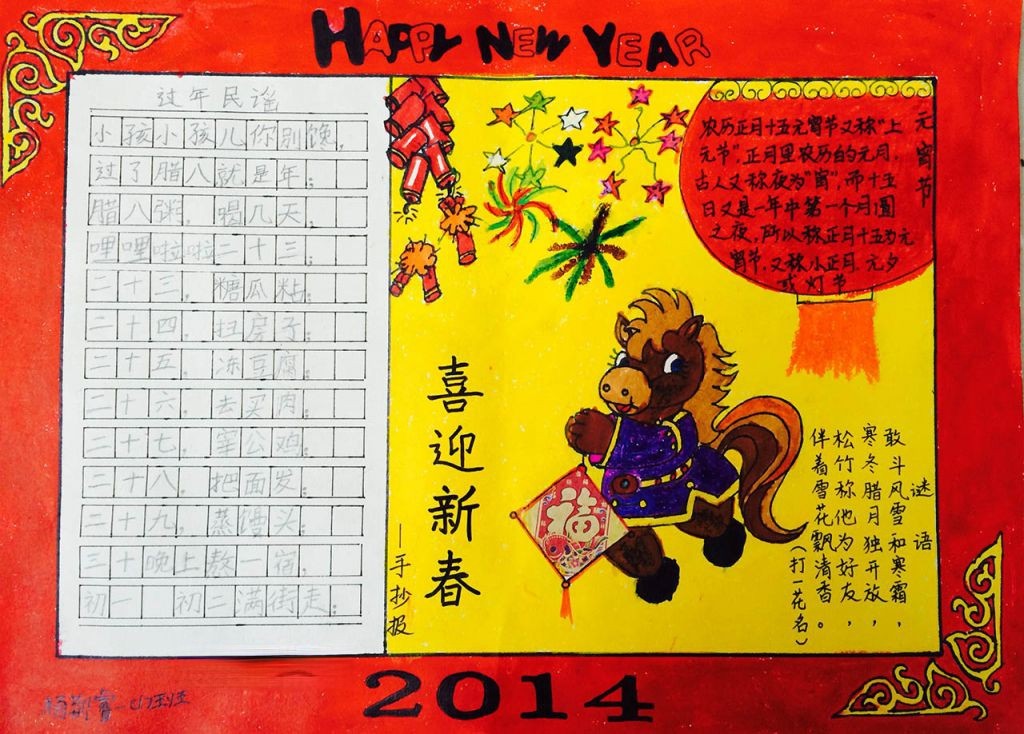 HAPPY NEW YEAR
过年民谣
小孩小孩儿你别馋,
过了腊八就是年;
腊八粥,喝几天,
哩哩啦啦二十三;
二十三,糖瓜粘;
二十四,扫房子;
二十五,冻豆腐;
二十六,去买肉;
二十七,宰公鸡;
二十八,把面发;
二十九,蒸馒头;
三十晚上熬一宿;
初一 初二满街走;
元宵节
农历正月十五元宵节又称"上
元节",正月里农历的元月,
古人又称夜为"宵",而十五
日又是一年中第一个月圆
之夜,所以称正月十五为元
宵节,又称小正月,元夕
或灯节
喜迎新春
—手抄报
福
谜语
敢斗风雪和寒霜,
寒冬腊月独开放,
松竹称他为好友,
伴着雪花飘清香。
(打一花名)
2014